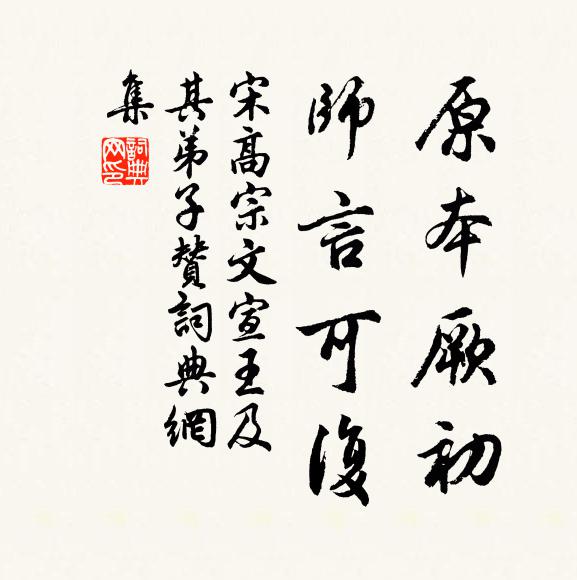 原本厥初
師言可復
宋高宗文宣王及
其弟子贊詞典網
集
詞典
网印